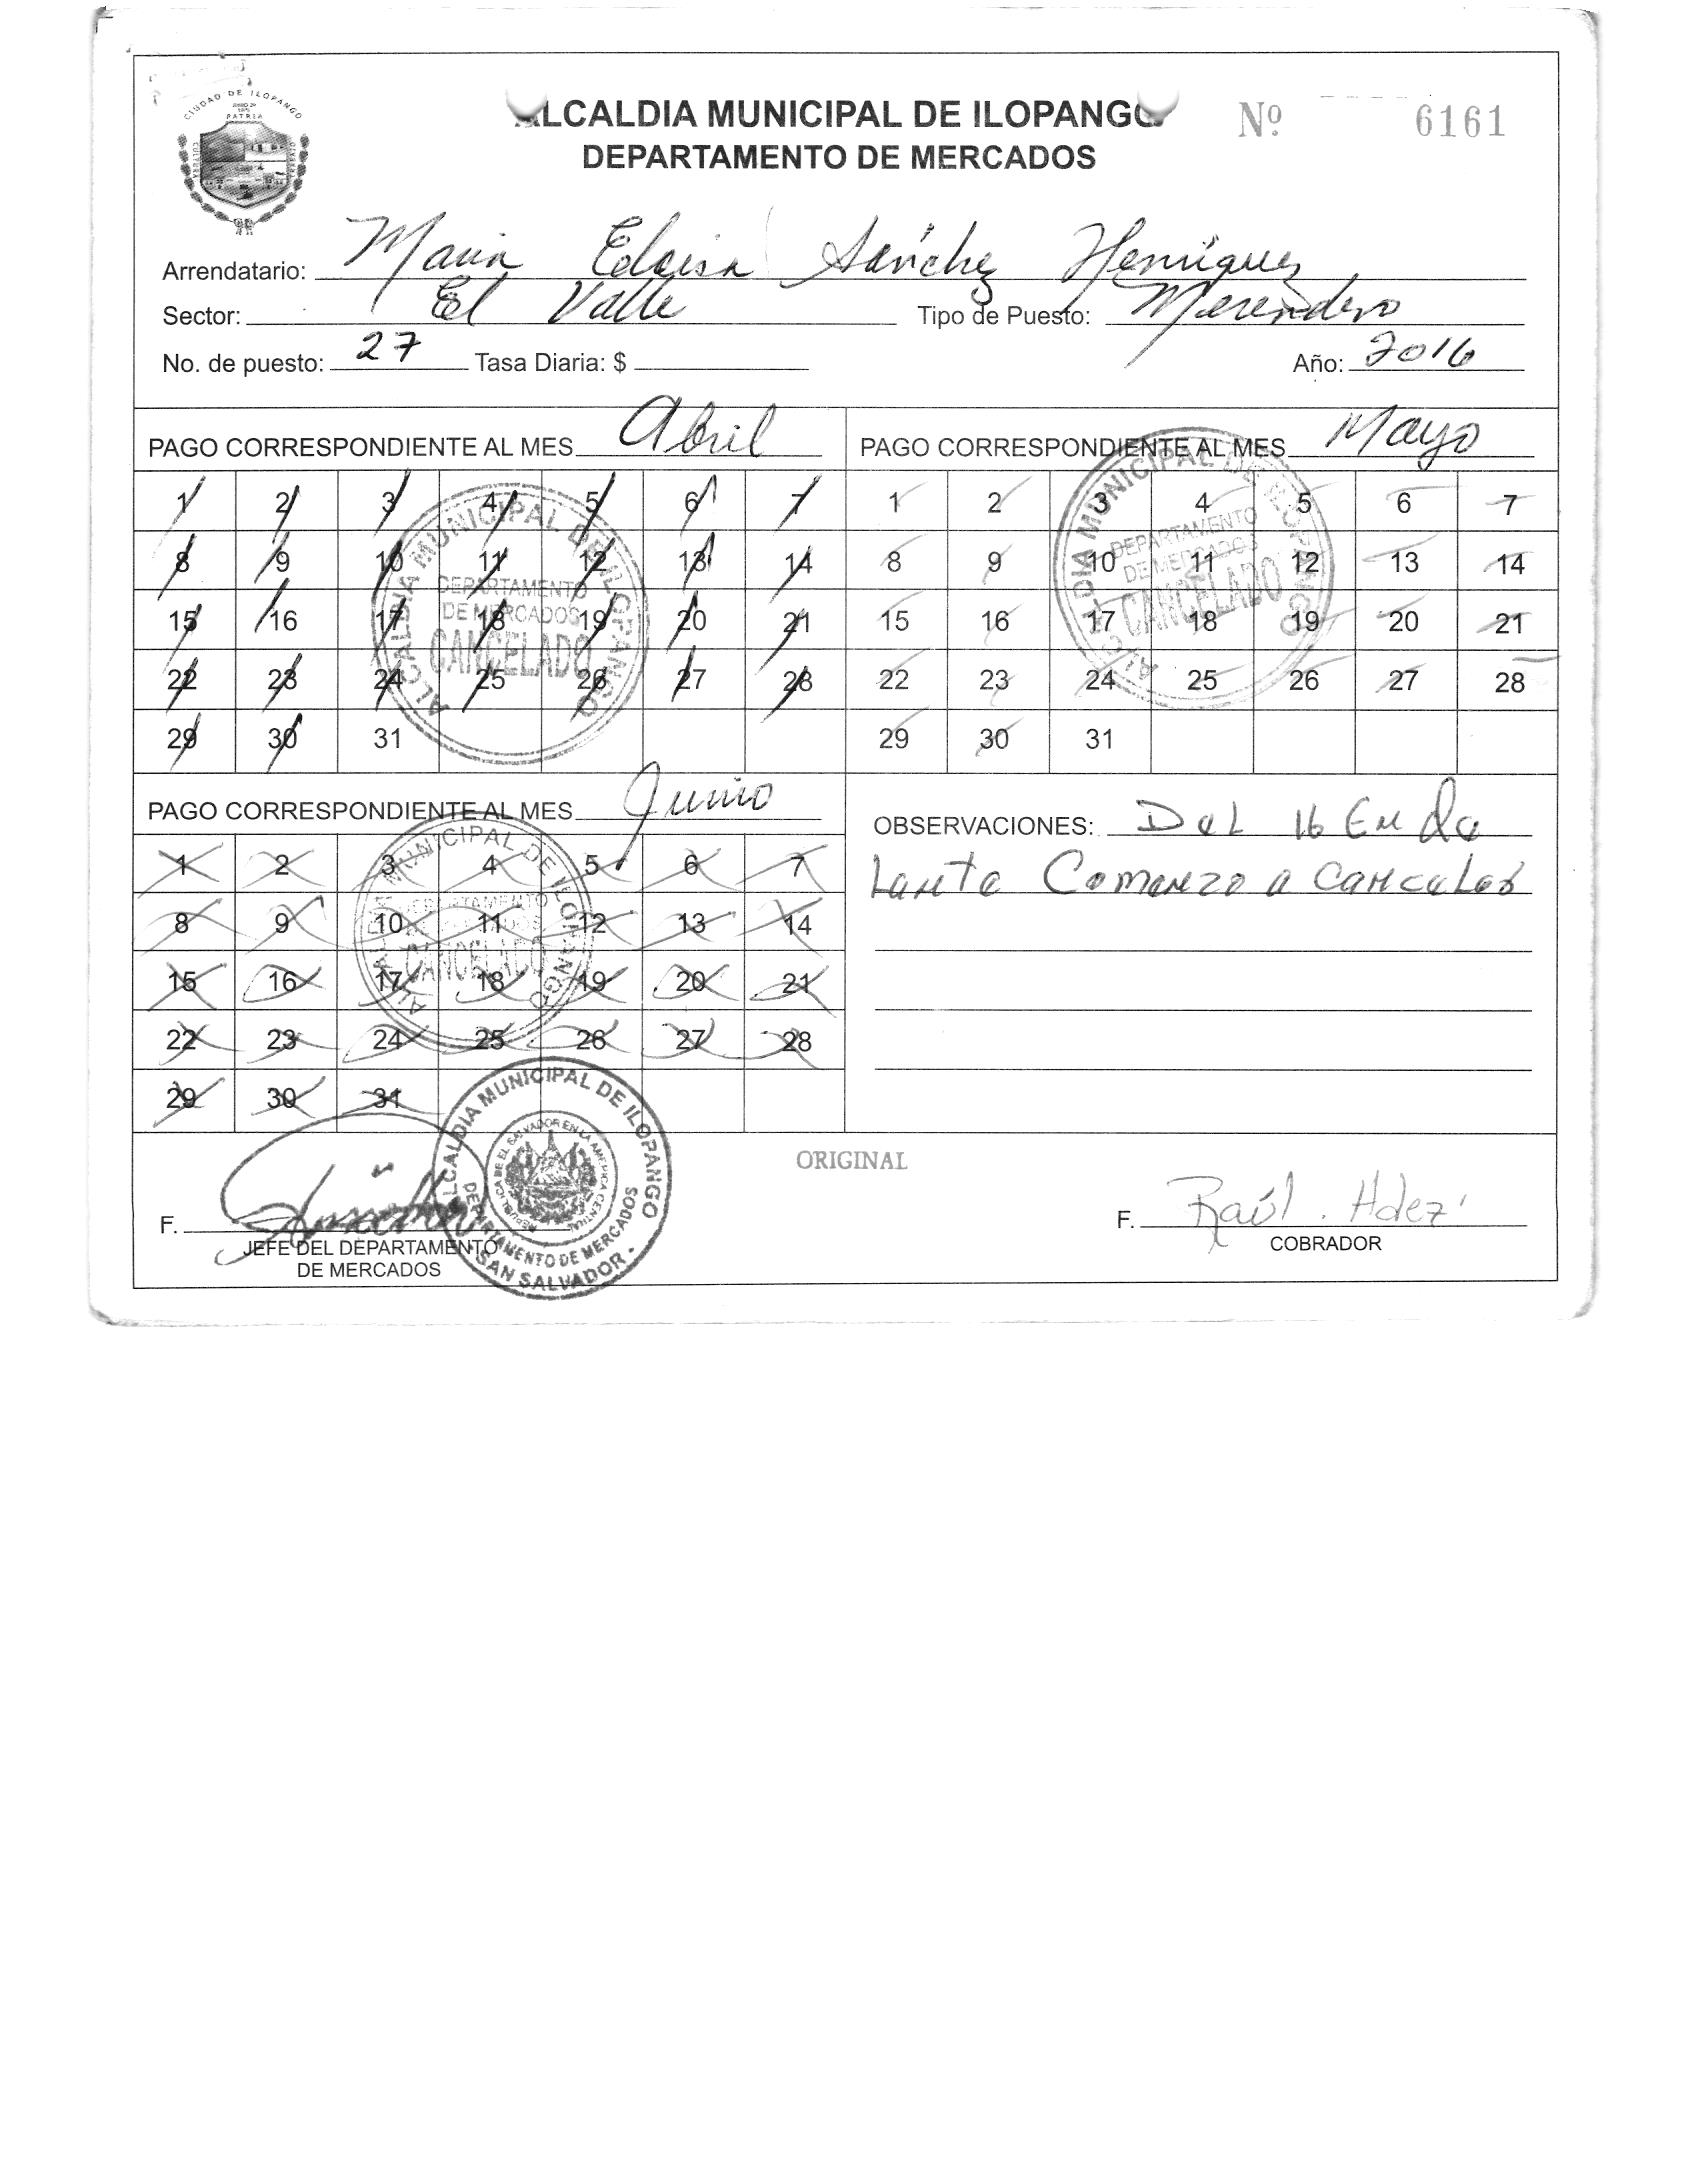 CIUDAD DE ILOPANGO
PATRIA
ALCALDIA MUNICIPAL DE ILOPANGO
Nº 6161
DEPARTAMENTO DE MERCADOS
Arrendatario: Maria Eloisa Sánchez Henríquez
Sector: El Valle Tipo de Puesto: Merendero
No. de puesto: 27 Tasa Diaria: $ Año: 2016
PAGO CORRESPONDIENTE AL MES Abril
1 2 3 4 5 6 7
8 9 10 11 12 13 14
15 16 17 18 19 20 21
22 23 24 25 26 27 28
29 30 31
ALCALDIA MUNICIPAL DE ILOPANGO
DEPARTAMENTO
DE MERCADOS
CANCELADO
PAGO CORRESPONDIENTE AL MES Mayo
1 2 3 4 5 6 7
8 9 10 11 12 13 14
15 16 17 18 19 20 21
22 23 24 25 26 27 28
29 30 31
ALCALDIA MUNICIPAL DE ILOPANGO
DEPARTAMENTO
DE MERCADOS
CANCELADO
PAGO CORRESPONDIENTE AL MES Junio
1 2 3 4 5 6 7
8 9 10 11 12 13 14
15 16 17 18 19 20 21
22 23 24 25 26 27 28
29 30 31
ALCALDIA MUNICIPAL DE ILOPANGO
DEPARTAMENTO
DE MERCADOS
CANCELADO
OBSERVACIONES: Del 16 En de
Lante Comenzo a cancelar
ALCALDIA MUNICIPAL DE ILOPANGO
REPUBLICA DE EL SALVADOR EN LA AMERICA CENTRAL
DEPARTAMENTO DE MERCADOS
SAN SALVADOR
ORIGINAL
F.
JEFE DEL DEPARTAMENTO
DE MERCADOS
F. Raúl. Hdez
COBRADOR